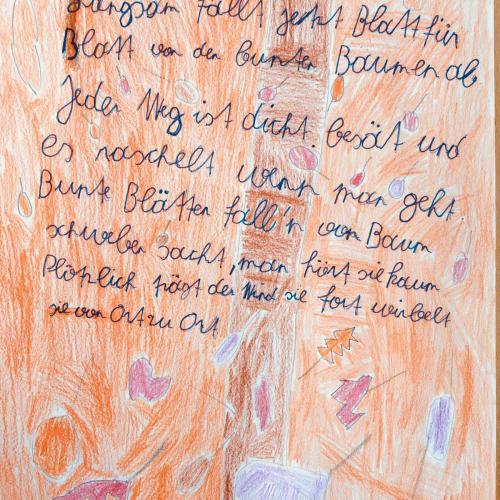 Langsam fällt jetzt Blatt für
Blatt von den bunten Bäumen ab
Jeder Weg ist dicht besät und
es raschelt wenn man geht.
Bunte Blätter fall'n vom Baum
schweben sacht, man hört sie kaum
Plötzlich trägt der Wind sie fort wirbelt
sie von Ort zu Ort